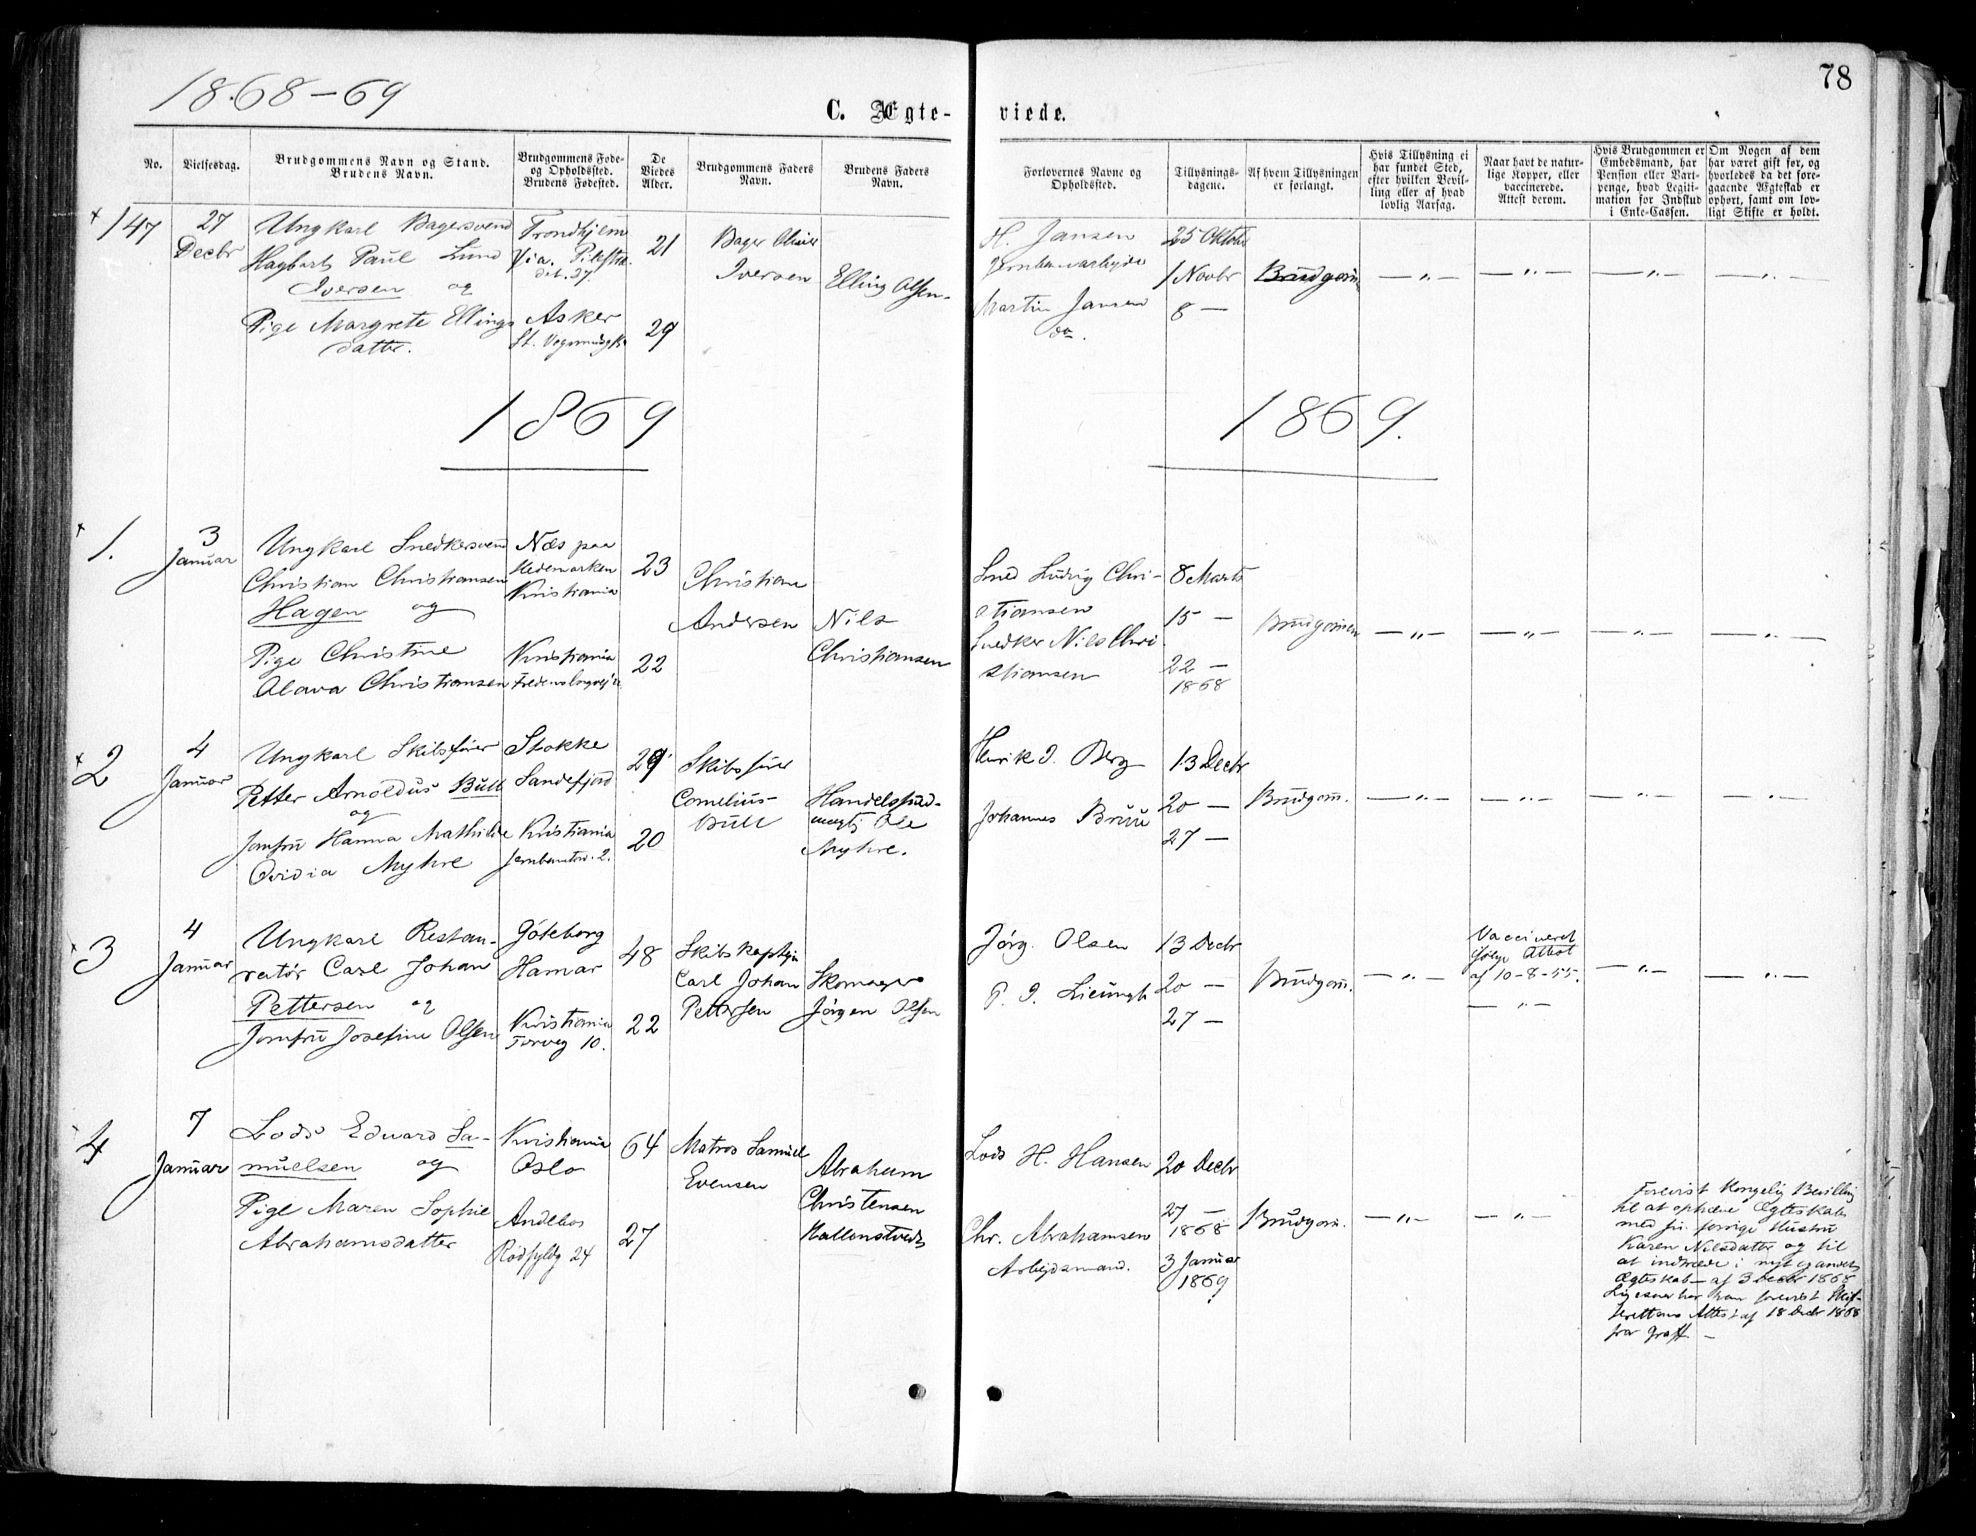 1868-69
78
C. Ægte-
viede.
No.
Vielsesdag.
Brudgommens Navn og Stand.
Brudens Navn.
Brudgommens Føde-
og Opholdssted.
Brudens Fødested.
De
Viedes
Alder.
Brudgommens Faders
Navn.
Brudens Faders
Navn.
Forlovernes Navne og
Opholdssted.
Tillysnings-
dagene.
Af hvem Tillysningen
er forlangt.
Hvis Tillysning ei
har fundet Sted,
efter hvilken Bevil-
ling eller af hvad
lovlig Aarsag.
Naar havt de natur-
lige Kopper, eller
vaccinerede.
Attest derom.
Hvis Brudgommen er
Embedsmand, har
Pension eller Vart-
penge, hvad Legiti-
mation for Indskud
i Enke-Cassen.
Om Nogen af dem
har været gift før, og
hvorledes da det fore-
gaaende Ægteskab er
ophørt, samt om lov-
ligt Skifte er holdt.
147
27
Decbr
Ungkarl Bagersvend
Hagbart Paul Lund
Iversen og
Pige Margrete Ellings
datter.
Trondhjem
Pilestræ
det. 37.
Asker
21
29
Bager Oliver
Iversen
Elling Olsen.
H. Jansen
Jernbanearbeyder
Martin Jansen
do.
25 Oktobr
1 Novbr
8 —
Brudgom
— „ —
— „ —
— „ —
— „ —
1869
1869.
1.
3
Januar
Ungkarl Snedkersvend
Christian Christiansen
Hagen og
Pige Christine
Olava Christiansen
Næs paa
Hedemarken
Kristiania
Kristiania
23
22
Christian
Andersen
Nils
Christiansen
Sned Ludvig Chri-
stiansen
Snedker Nils Chri-
stiansen
8 Marts
15 —
22 —
1868
Brudgommen
— „ —
— „ —
— „ —
— „ —
2
4
Januar
Ungkarl Skibsfører
Petter Arnoldus Bull
og
Jomfru Hanna Mathilde
Ovidia Myhre
Stokke
Sandefjord
Kristiania
Jernbanetov. 2.
29
20
Skibsfører
Cornelius
Bull
Handelsfuld-
mægtj Ole
Myhre.
Henrik J. Berg
Johannes Bruu
13 Decbr
20 —
27 —
Brudgom.
— „ —
— „ —
— „ —
— „ —
3
4
Januar
Ungkarl Restau-
ratør Carl Johan
Pettersen og
Jomfru Josefine Olsen
Göteborg
Hamar
Kristiania
Torveg 10.
48
22
Skibskaptjn
Carl Johan
Pettersen
Skomager
Jörgen Olsen
Jörg. Olsen
P. J. Lieungh
13 Decbr
20 —
27 —
Brudgom.
— „ —
Vaccineret
ifølge Attest
af 10-8-55.
— „ —
— „ —
— „ —
4
7
Januar
Lods Eduard Sa-
muelsen og
Pige Maren Sophie
Abrahamsdatter
Kristiania
Oslo
Andebo
Rødfyldg 24
64
27
Matros Samuel
Evensen
Abraham
Christensen
Hallenstvedt
Lods H. Hansen
Chr. Abrahamsen
Arbejdsmand.
20 Decbr
27 —
1868
3 Januar
1869
Brudgom.
— „ —
— „ —
Forevist Kongelig Bevilling
til at ophæve Ægteskabet
med sin forrige Hustru
Karen Nilsdatter og til
at indtræde i nyt gjentet
Ægteskab af 3 Decbr 1868
Ligesaa har han forevist Skif-
terettens Attest af 18 Decbr 1868